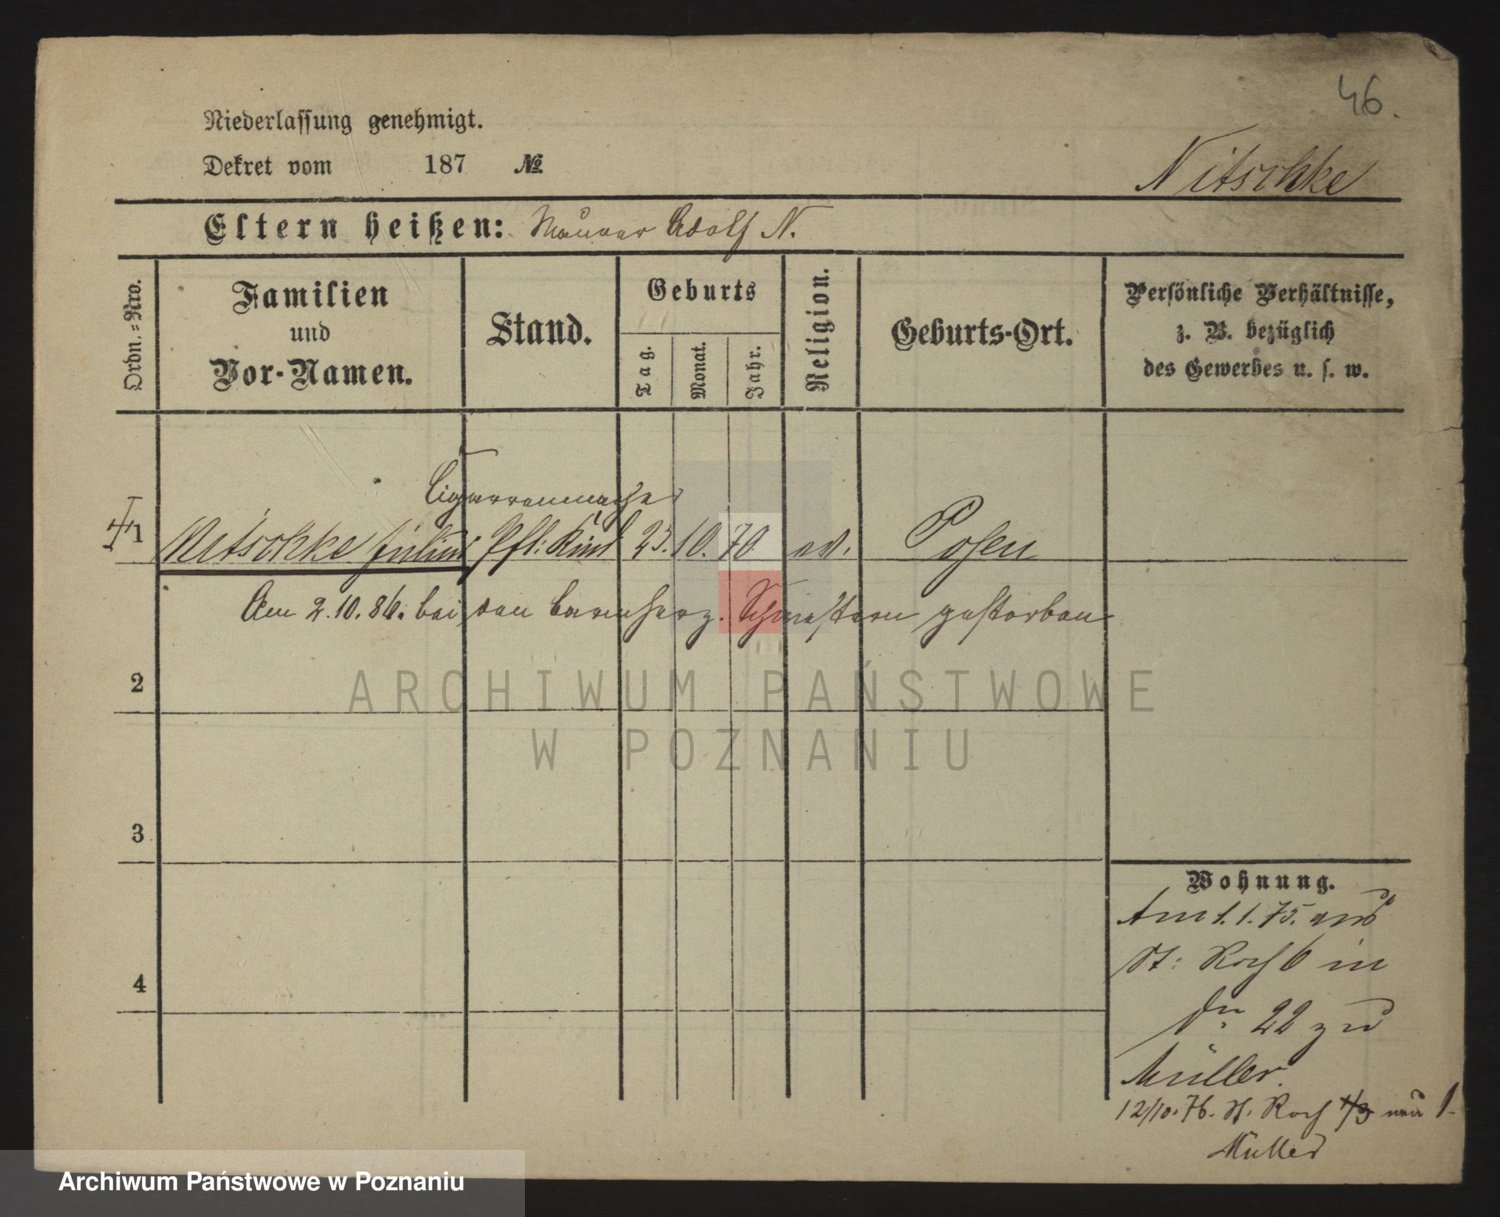 46.
Niederlassung genehmigt.
Dekret vom 187 №
Nitschke
Eltern heißen: Maurer Adolf N.
Ordn.=Nro.
Familien
und
Vor-Namen.
Stand.
Geburts
Tag.
Monat.
Jahr.
Religion.
Geburts-Ort.
Persönliche Verhältnisse,
z. B. bezüglich
des Gewerbes u. s. w.
Cigarrenmacher
1 Nitschke Julius Pfl: Kind 25. 10. 70 ev. Posen
Am 2.10.86. bei den barmherz. Schwestern gestorben
2
ARCHIWUM PAŃSTWOWE
W POZNANIU
3
4
Wohnung.
Am 1.1.75. aus
St: Roch 6 in
22 zu
Müller.
12/10.76. St. Roch 1/3 neu 1.
Müller
Archiwum Państwowe w Poznaniu